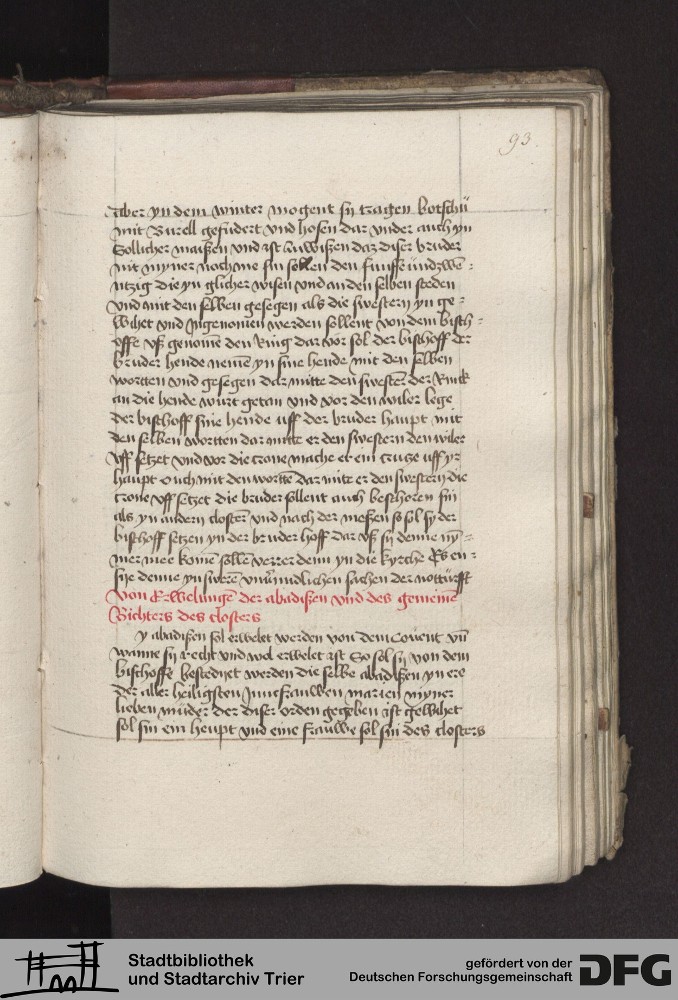 93.
Aber yn dem winter mogent sij tragen botschū
mit Burell gefudert vnd hosen dar vnder auch yn
Sollicher maißen vnd ist zu wißen daz diser bruder
nit myner noch me sin sollen den funffe vndzwē-
ntzig die yn glicher wisen vnd an den selben steden
vnd mit den selben gesegen als die swestern yn ge-
wihet vnd Jngenomen werden sollent von dem bisch-
offe vß genomē den Ring dar vor sol der bischoff der
bruder hende nemē yn sine hende mit den selben
wortten vnd gesegen dar mitte den swestern der Rinck
an die hende wurt getan vnd vor den wiler lege
der bischoff sine hende uff der bruder haupt mit
den selben wortten dar mitte er den swestern den wiler
vff setzet vnd vor die crone mache er ein crutze uff yr
haupt Ouch mit den wortē dar mitte er den swestern die
crone vff setzet die bruder sollent auch beschoren sin
als yn andern closterē vnd nach der meßen so sol sy der
bischoff setzen yn der bruder hoff dar vß sij denne ny-
mer mee komē sollē verrer denn yn die kyrche Es en-
sije denne yn swerē vnūmidlichen sachen der notturfft
Von Erwelungē der abadißen vnd des gemeinē
Bichters des closters
y abadißen sol erwelet werden von dem Couent vn̄
wanne sij recht vnd wol erwelet ist So sol sij von dem
bischoffe bestediget werden die selbe abadißen yn ere
der aller heiligsten Junckfrauwen marien myner
lieben muder der diser orden gegeben ist gewihet
sol sin ein heupt vnd eine frauwe sol sin des closters
Stadtbibliothek
und Stadtarchiv Trier
gefördert von der
Deutschen Forschungsgemeinschaft
DFG